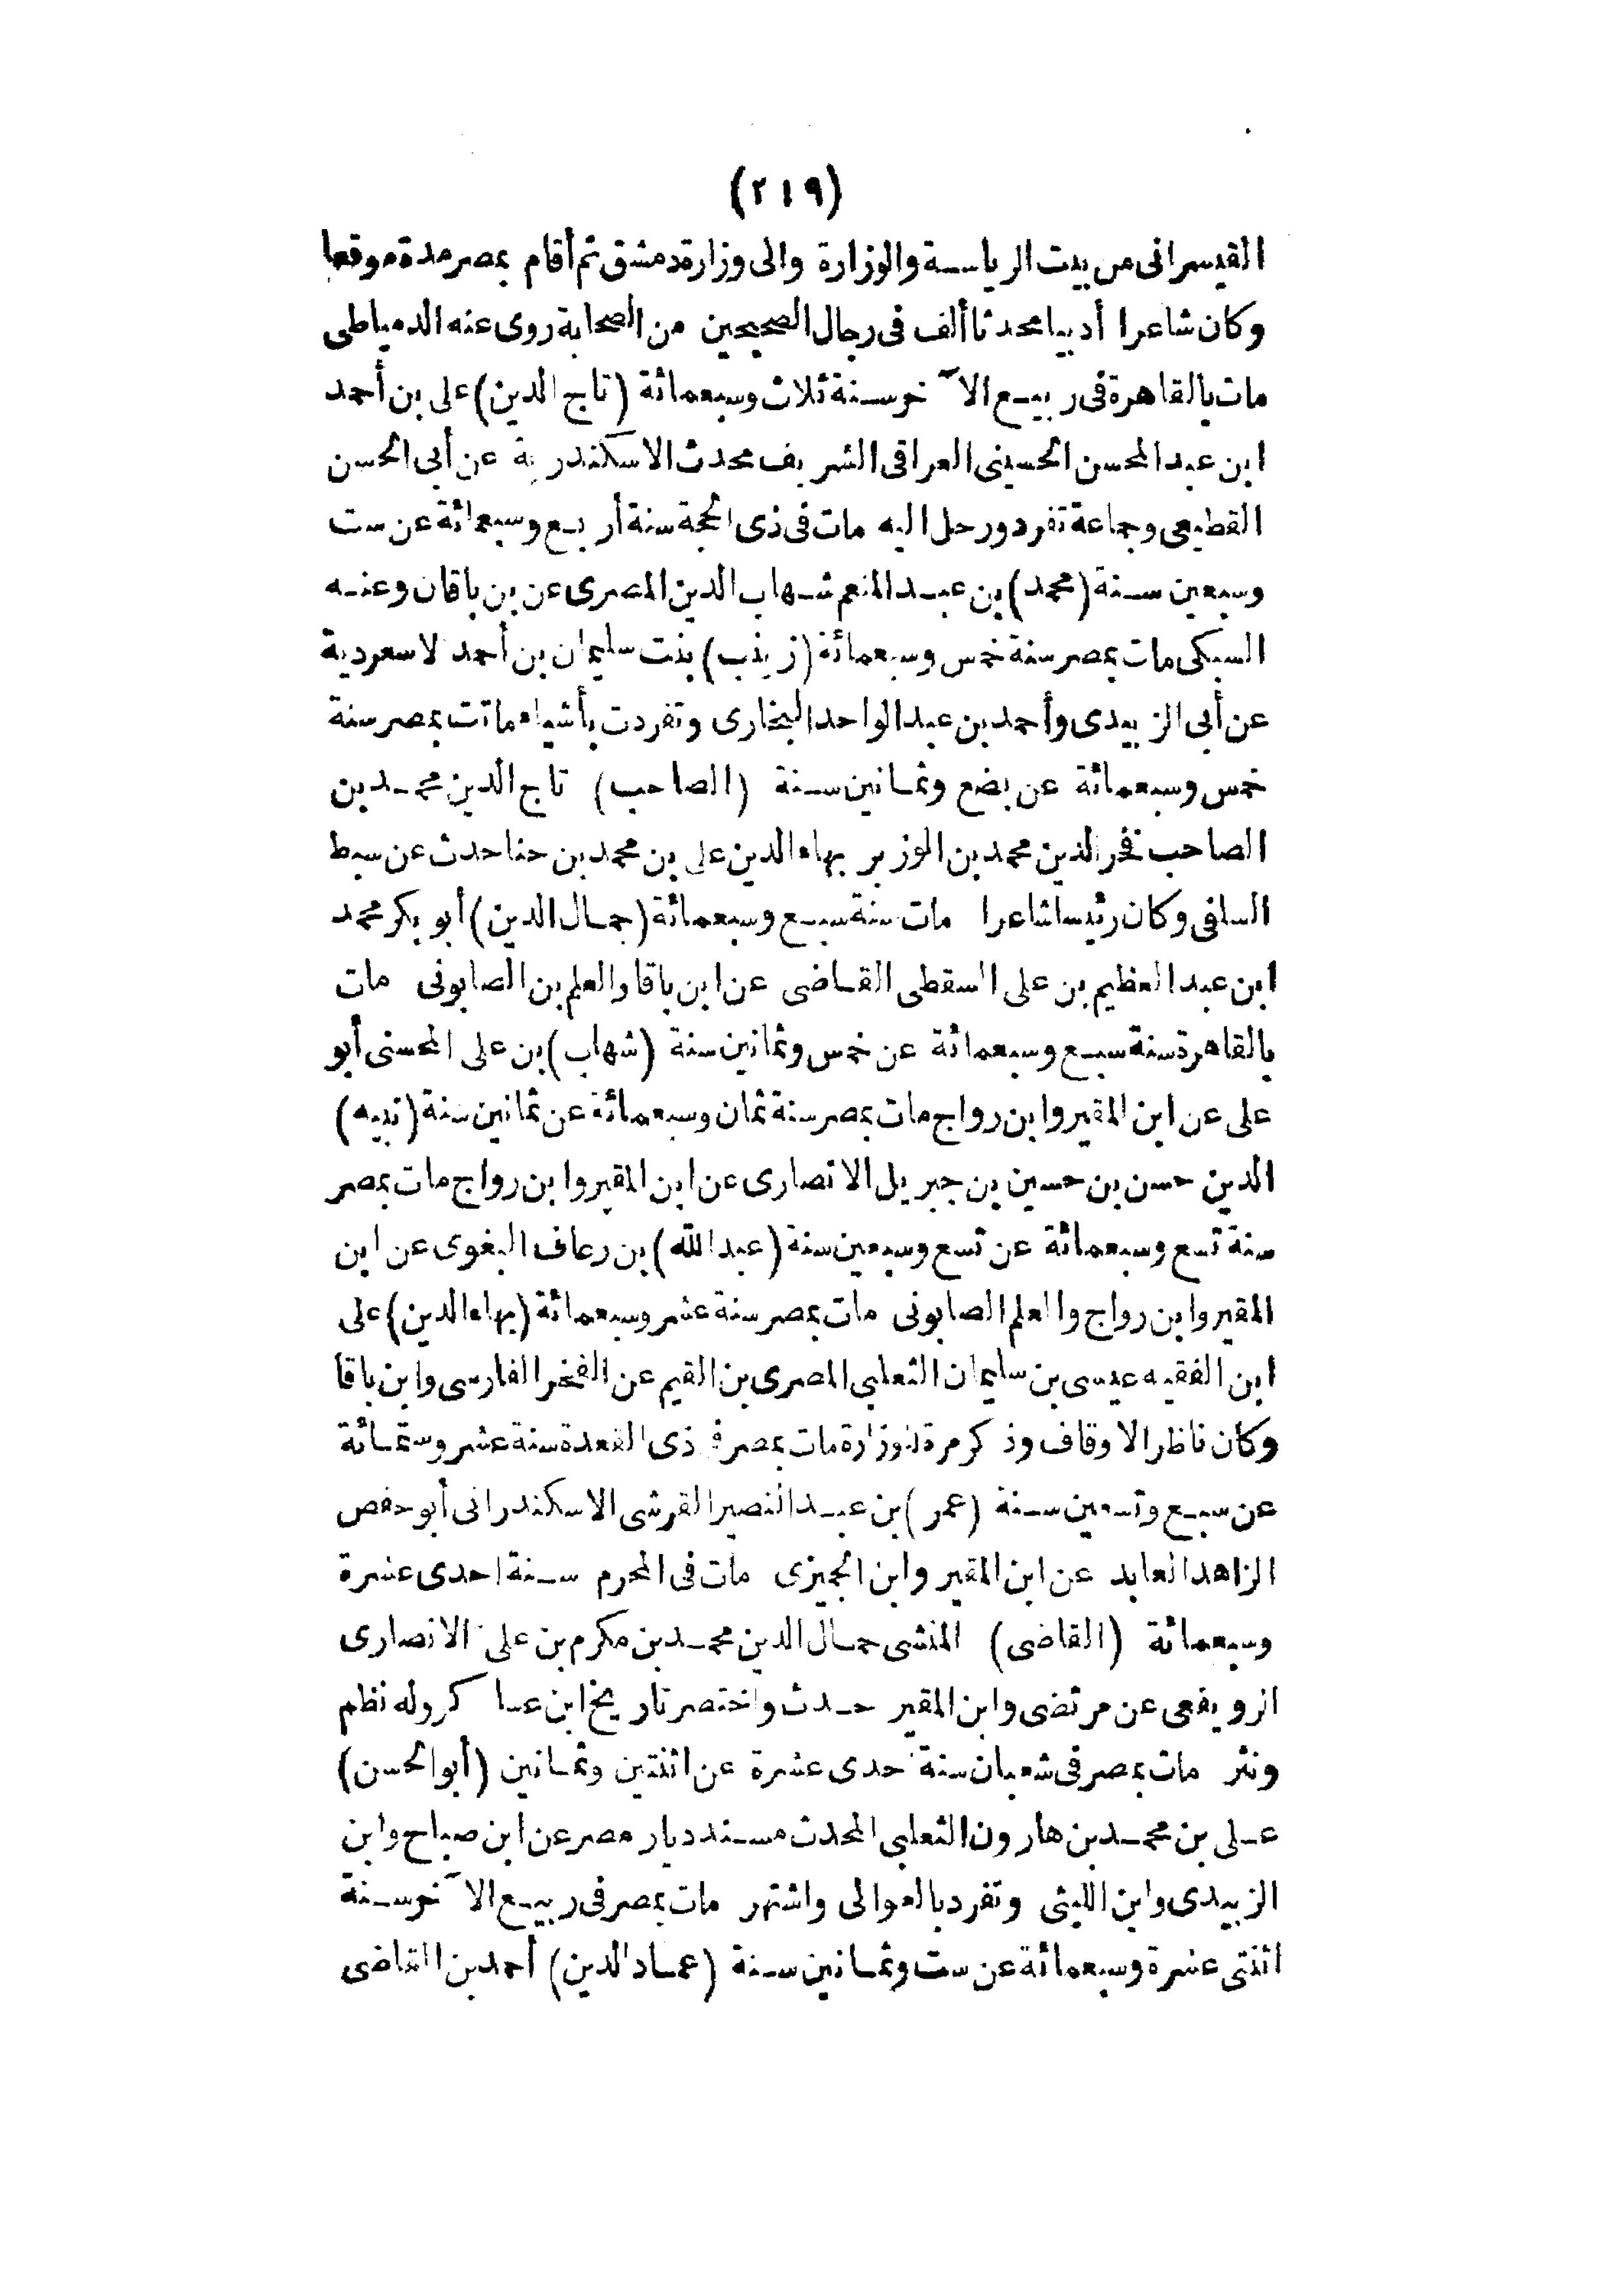 (٢١٩)
القيسرانى من بيت الرياسة والوزارة والى وزارة دمشق ثم أقام بمصر مدة موقعا
وكان شاعرا أديبا محدثا ألف فى رجال الصحيحين من الصحابة روى عنه الدمياطى
مات بالقاهرة فى ربيع الآخر سنة ثلاث وسبعمائة (تاج الدين) على بن أحمد
ابن عبد المحسن الحسينى العراقى الشريف محدث الاسكندرية عن أبى الحسن
القطيعى وجماعة تفرد ورحل اليه مات فى ذى الحجة سنة أربع وسبعمائة عن ست
وسبعين سنة (محمد) بن عبد المنعم شهاب الدين المصرى عن بن باقان وعنه
السبكى مات بمصر سنة خمس وسبعمائة (زينب) بنت سليمان بن أحمد لاسعردية
عن أبى الزبيدى وأحمد بن عبد الواحد البخارى وتفردت بأشياء ماتت بمصر سنة
خمس وسبعمائة عن بضع وثمانين سنة (الصاحب) تاج الدين محمد بن
الصاحب فخر الدين محمد بن الوزير بهاء الدين على بن محمد بن حنا حدث عن سبط
السلفى وكان رئيسا شاعرا مات سنة سبع وسبعمائة (جمال الدين) أبو بكر محمد
ابن عبد العظيم بن على السقطى القاضى عن ابن باقا والعلم بن الصابونى مات
بالقاهرة سنة سبع وسبعمائة عن خمس وثمانين سنة (شهاب) بن على المحسنى أبو
على عن ابن المقير وابن رواج مات بمصر سنة ثمان وسبعمائة عن ثمانين سنة (نبيه)
الدين حسن بن حسين بن جبريل الانصارى عن ابن المقير وابن رواج مات بمصر
سنة تسع وسبعمائة عن تسع وسبعين سنة (عبد الله) بن رعاف البغوى عن ابن
المقير وابن رواج والعلم الصابونى مات بمصر سنة عشر وسبعمائة (بهاء الدين) على
ابن الفقيه عيسى بن سليمان الثعلبى المصرى بن القيم عن الفخر الفارسى وابن باقا
وكان ناظر الاوقاف وذكر مرة للوزارة مات بمصر فى ذى القعدة سنة عشر وستمائة
عن سبع وتسعين سنة (عمر) بن عبد النصير القرشى الاسكندرانى أبو حفص
الزاهد العابد عن ابن المقير وابن الجميزى مات فى المحرم سنة احدى عشرة
وسبعمائة (القاضى) المنشى جمال الدين محمد بن مكرم بن على الانصارى
الرويفعى عن مرتضى وابن المقير حدث واختصر تاريخ ابن عساكر وله نظم
ونثر مات بمصر فى شعبان سنة احدى عشرة عن اثنتين وثمانين (أبو الحسن)
على بن محمد بن هارون الثعلبى المحدث مسند ديار مصر عن ابن صباح وابن
الزبيدى وابن الليثى وتفرد بالعوالى واشتهر مات بمصر فى ربيع الآخر سنة
اثنتى عشرة وسبعمائة عن ست وثمانين سنة (عماد الدين) أحمد بن القاضى